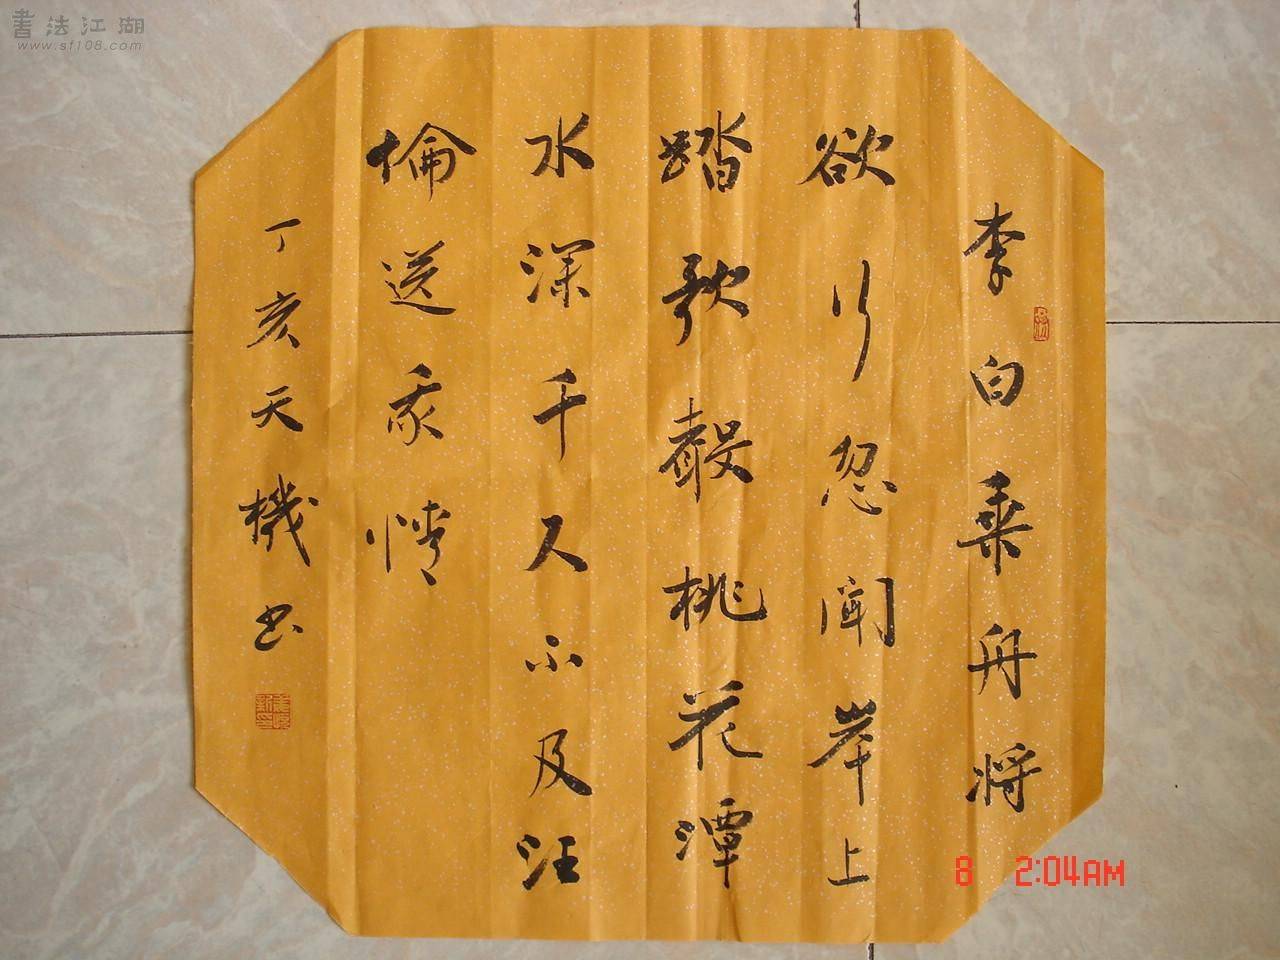 書法江湖
www.sf108.com
李白乘舟將
欲行忽聞岸上
踏歌聲桃花潭
水深千尺不及汪
倫送我情
丁亥天機書
8 2:04AM